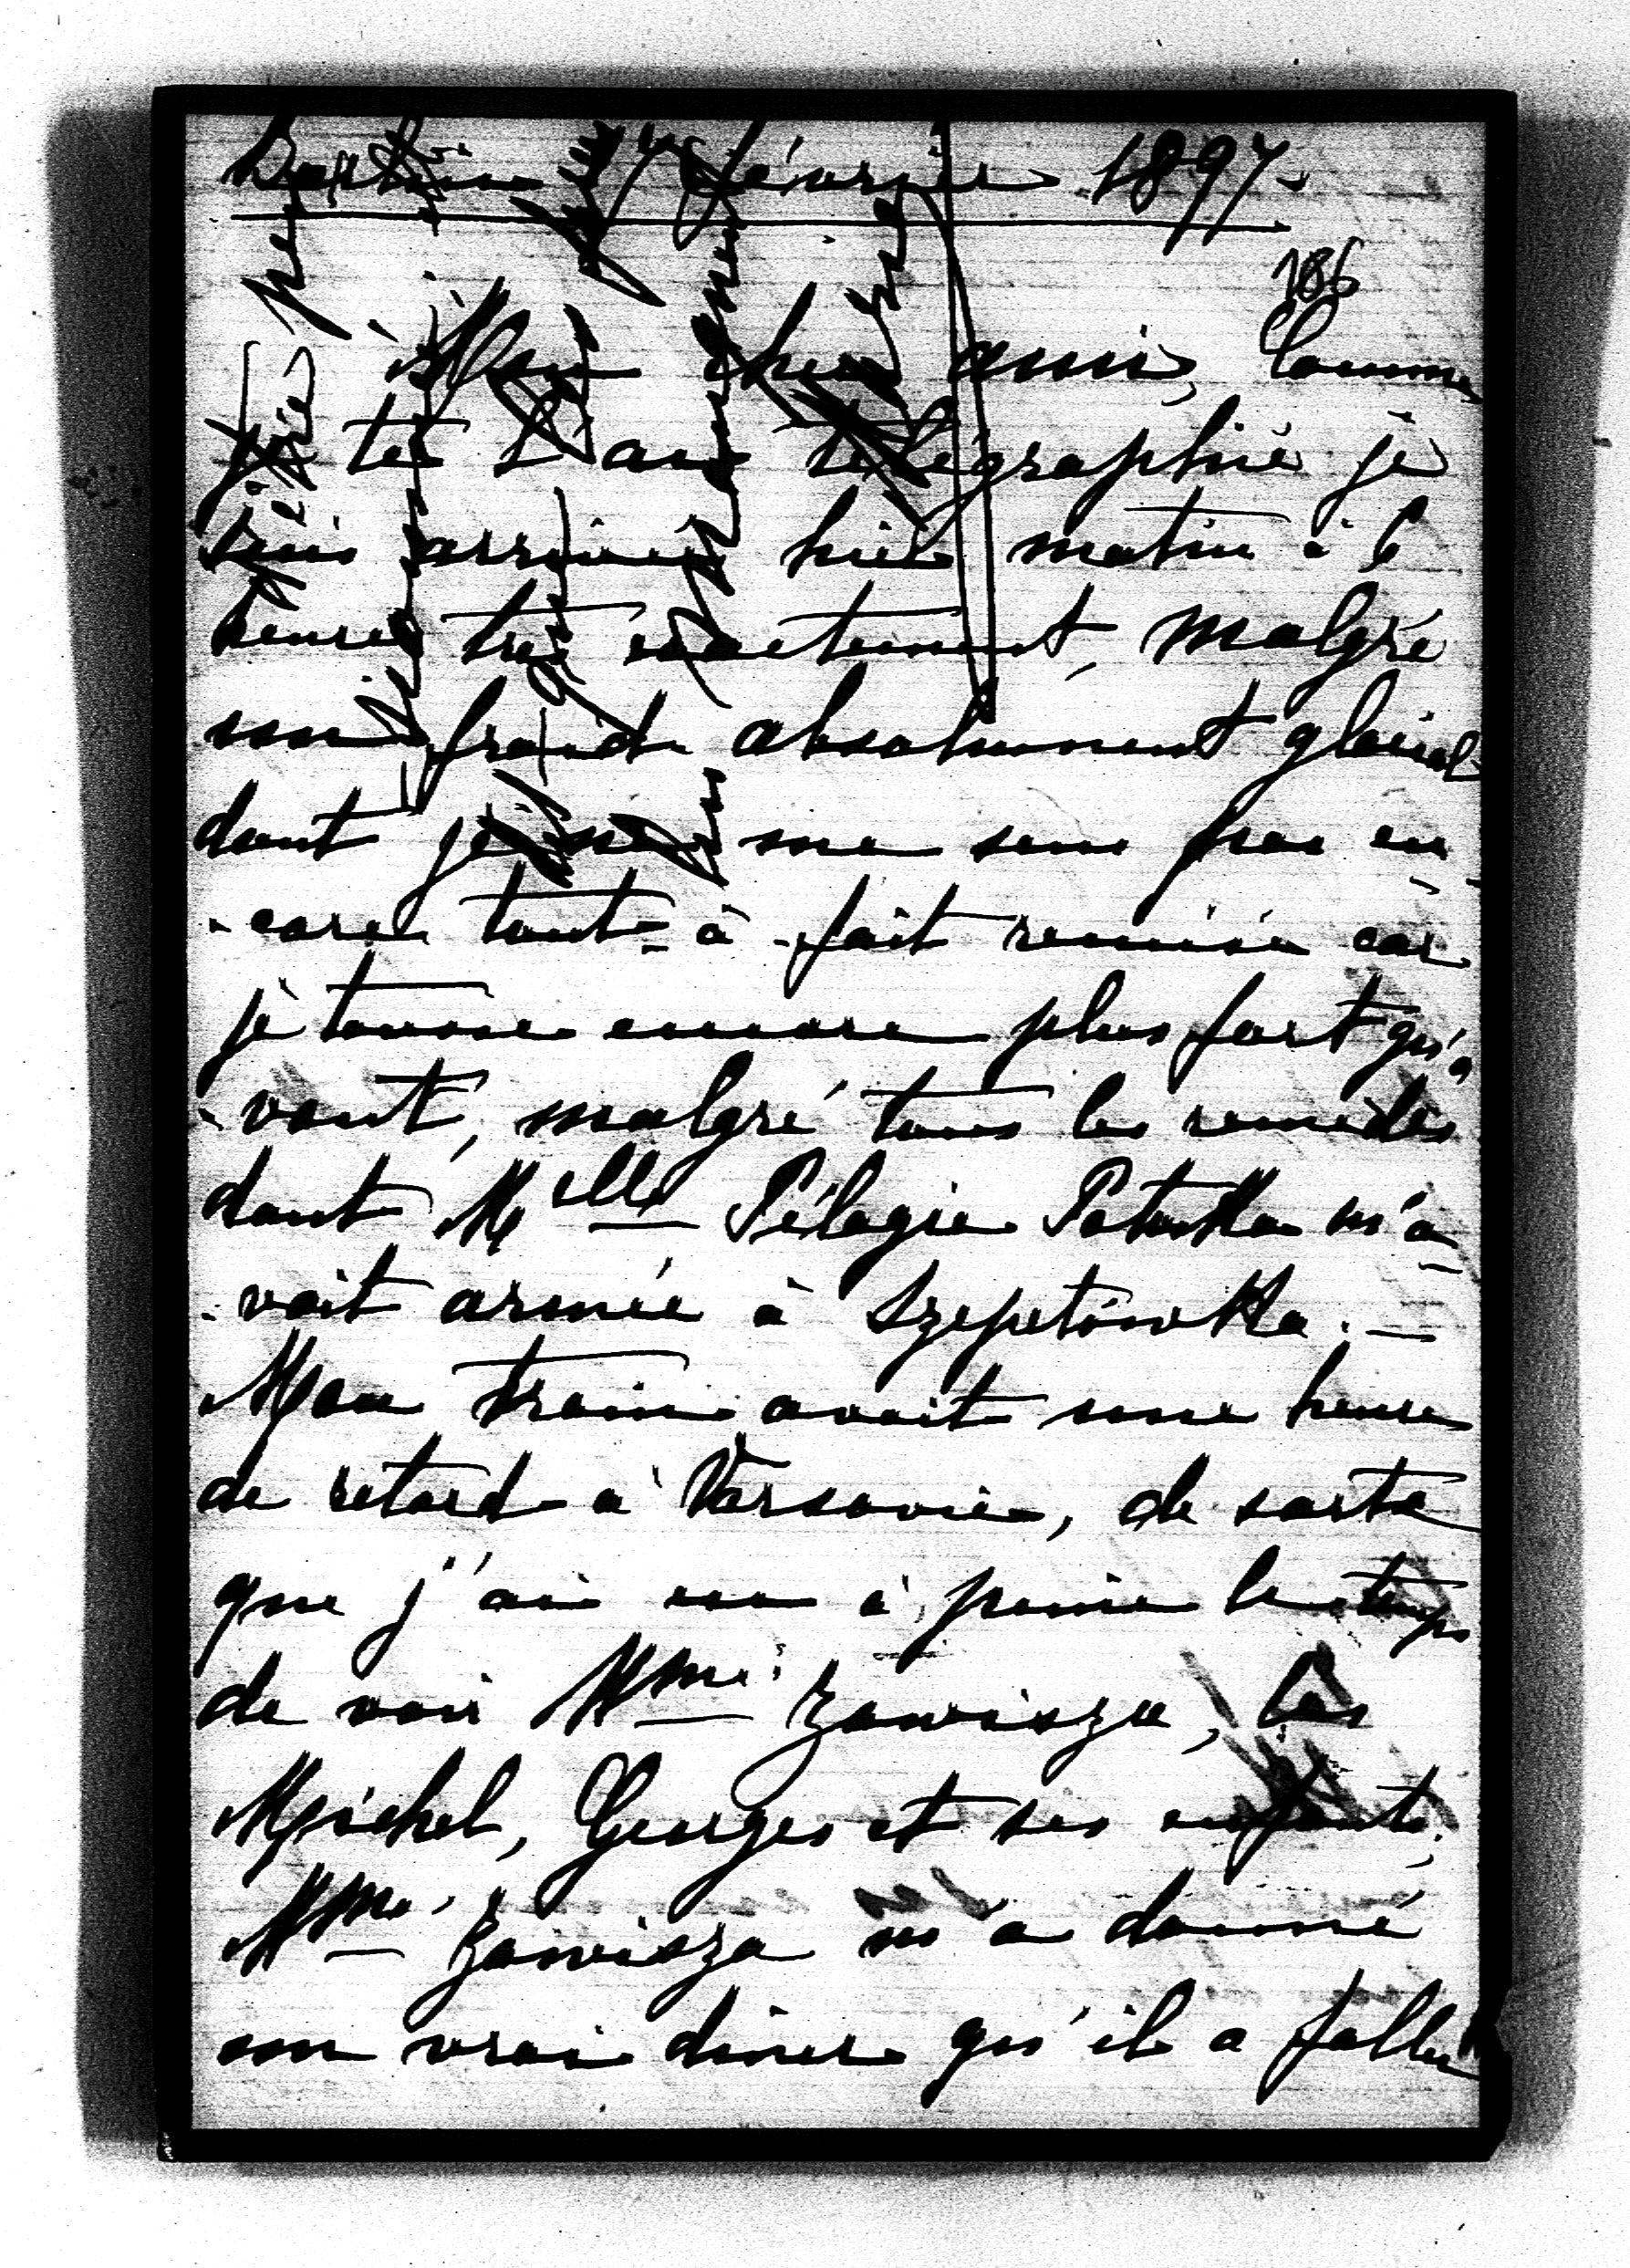 Berlin 1er février 1897.
186
Mon cher ami, Comme
je te l'ai télégraphié je
suis arrivée hier matin à 6
heures très exactement, malgré
un froid absolument glacial
dont je ne me sens pas en-
-core tout-à-fait remise car
je tousse encore plus fort qu'a
-vant, malgré tous les remèdes
dont Melle Pélagie Potocka m'a-
-vait armée à Szepetówka. —
Mon train avait une heure
de retard à Varsovie, de sorte
que j'ai eu à peine le temps
de voir Mme Zawisza, les
Michel, Georges et ses enfants.
Mme Zawisza m'a donné
un vrai diner qu'il a fallu